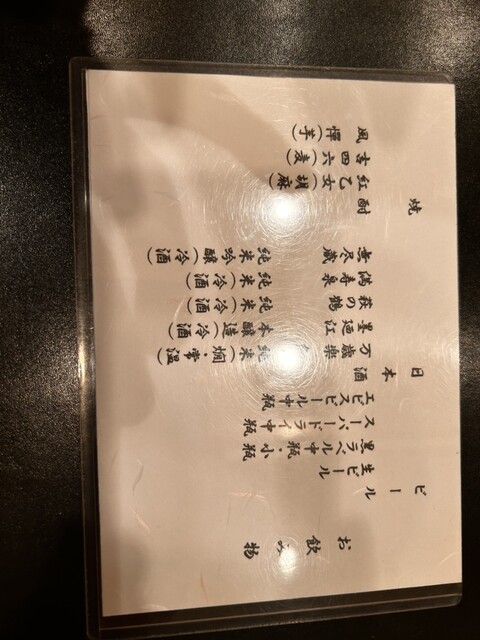 お飲み物
ビール
生ビール
黒ラベル中瓶・小瓶
スーパードライ中瓶
エビスビール中瓶
日本酒
万歳楽 純米(燗・常温)
墨廼江 本醸造(冷酒)
萩の鶴 純米(冷酒)
満寿泉 純米(冷酒)
無尽蔵 純米吟醸(冷酒)
焼酎
紅乙女(胡麻)
吉四六(麦)
風憚(芋)